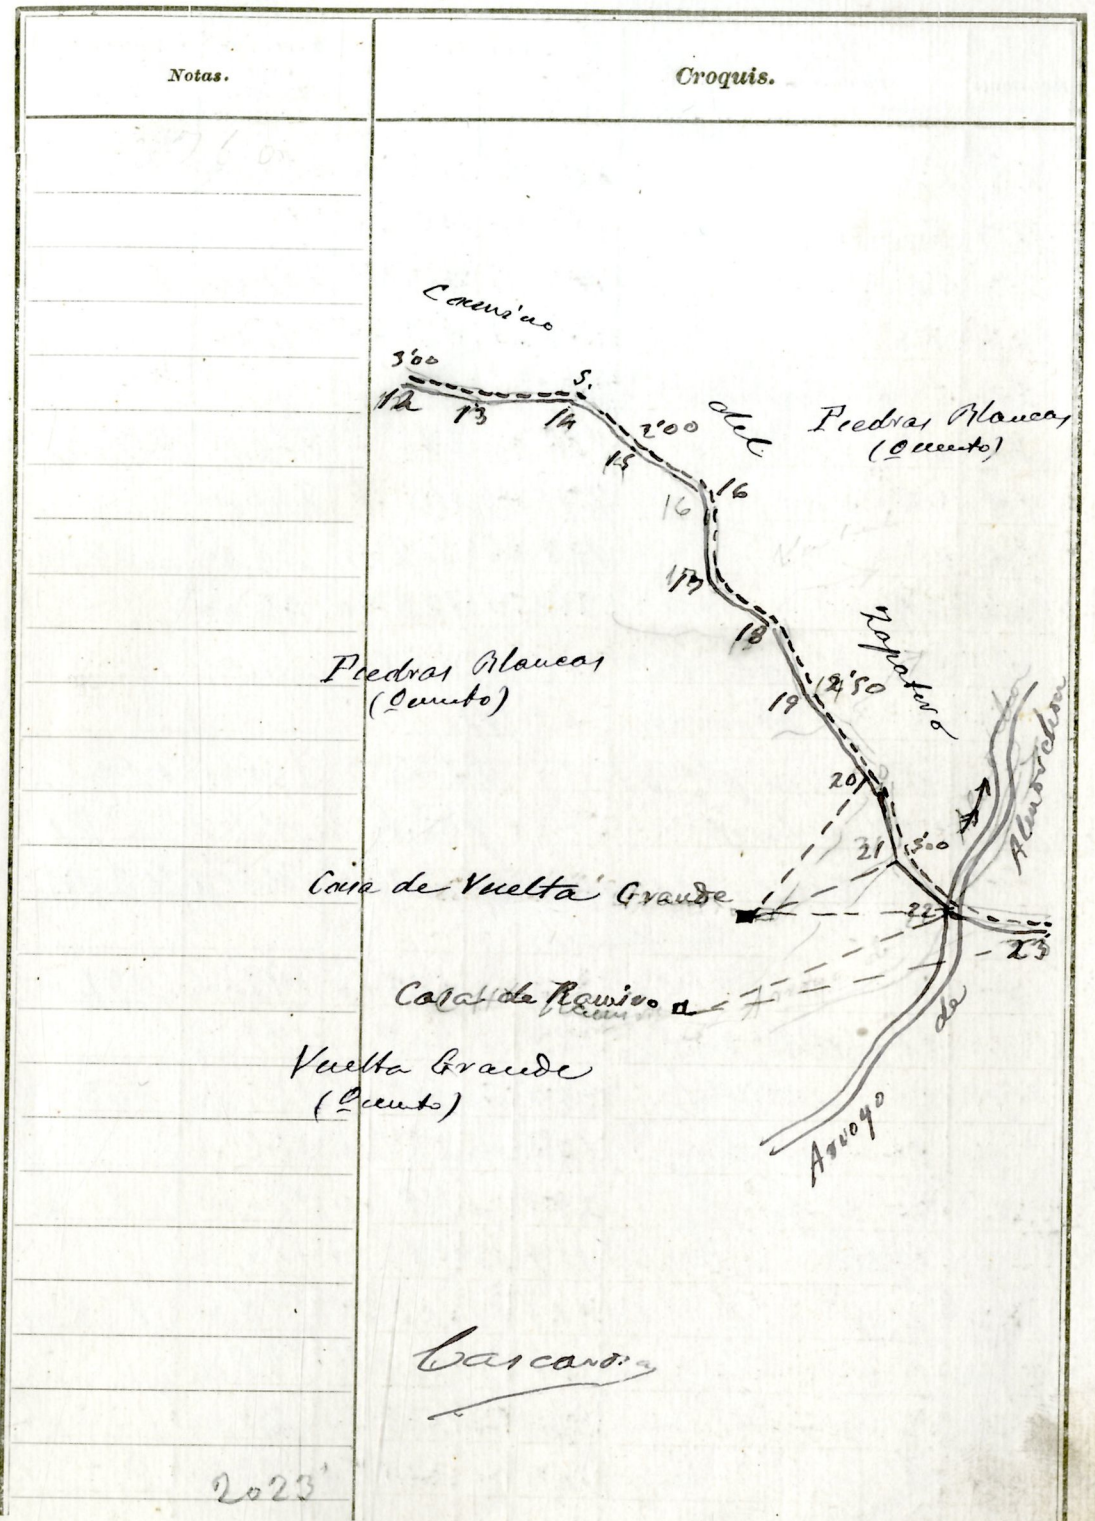 Notas.
Croquis.
Camino
3'00
12
13
14
S.
15
2'00
del
Piedras Blancas
(Quinto)
16
16
17
18
Zapatero
Piedras Blancas
(Quinto)
19
2'50
20
21
3'00
Almorchon
Casa de Vuelta Grande
22
23
Casa de Ramiro
de
Vuelta Grande
(Quinto)
Arroyo
2023